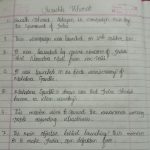 Swachh Bharat
1. Swachh Bharat Abhiyan is campaign run by
the government of India.
2. This campaign was launched on
3. It was launched by prime minister of India
Shri Narendra Modi from
4. It was launched on birth anniversary of
Mahatma Gandhi.
5. Mahatma Gandhi's dream was that India should
known as clean country.
6. This mission aims to spread the awareness among
people regarding cleanliness.
7. The main objective behind launching this mission
is to make India open defecation free.